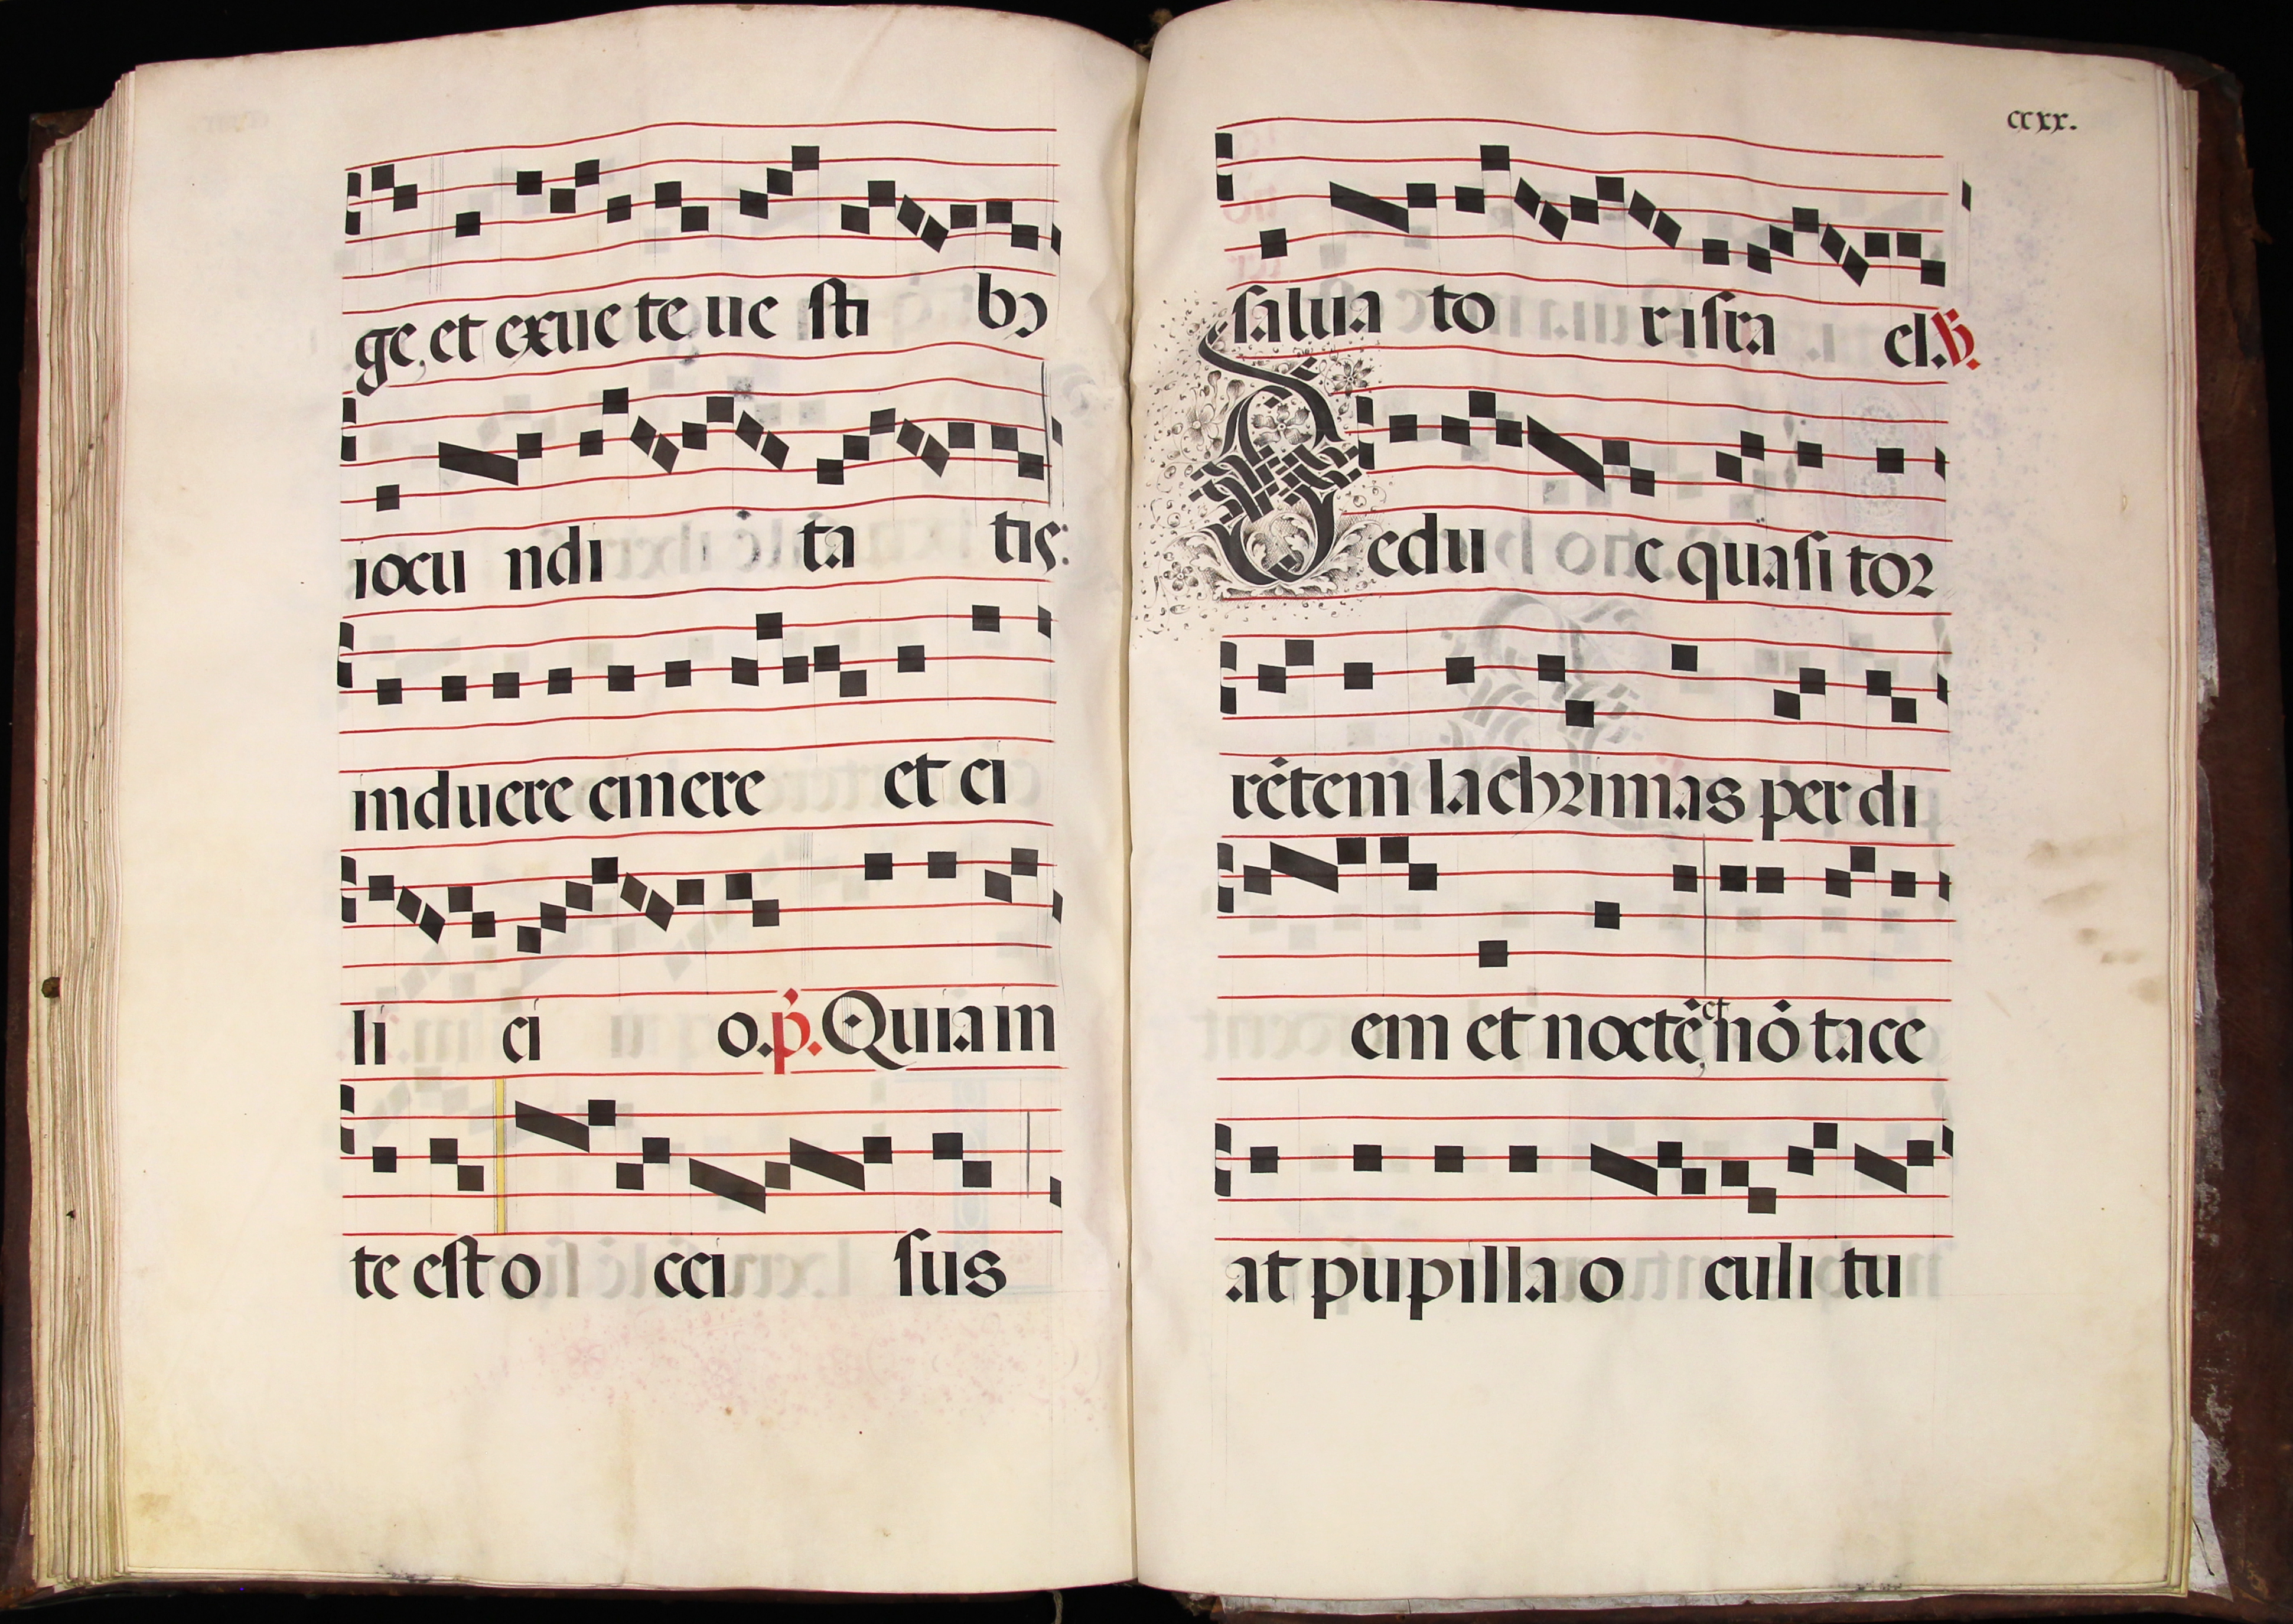 ge, et exue te ue sti bꝰ
iocu ndi ta tis:
induere cinere et ci
li ci o. p̾. Quia in
te est o cci sus
ccxx.
salua to r isra el. ℣.
Dedu c quasi tor
rētem lachrimas per di
em et noctē, et nō tace
at pupilla o culi tu